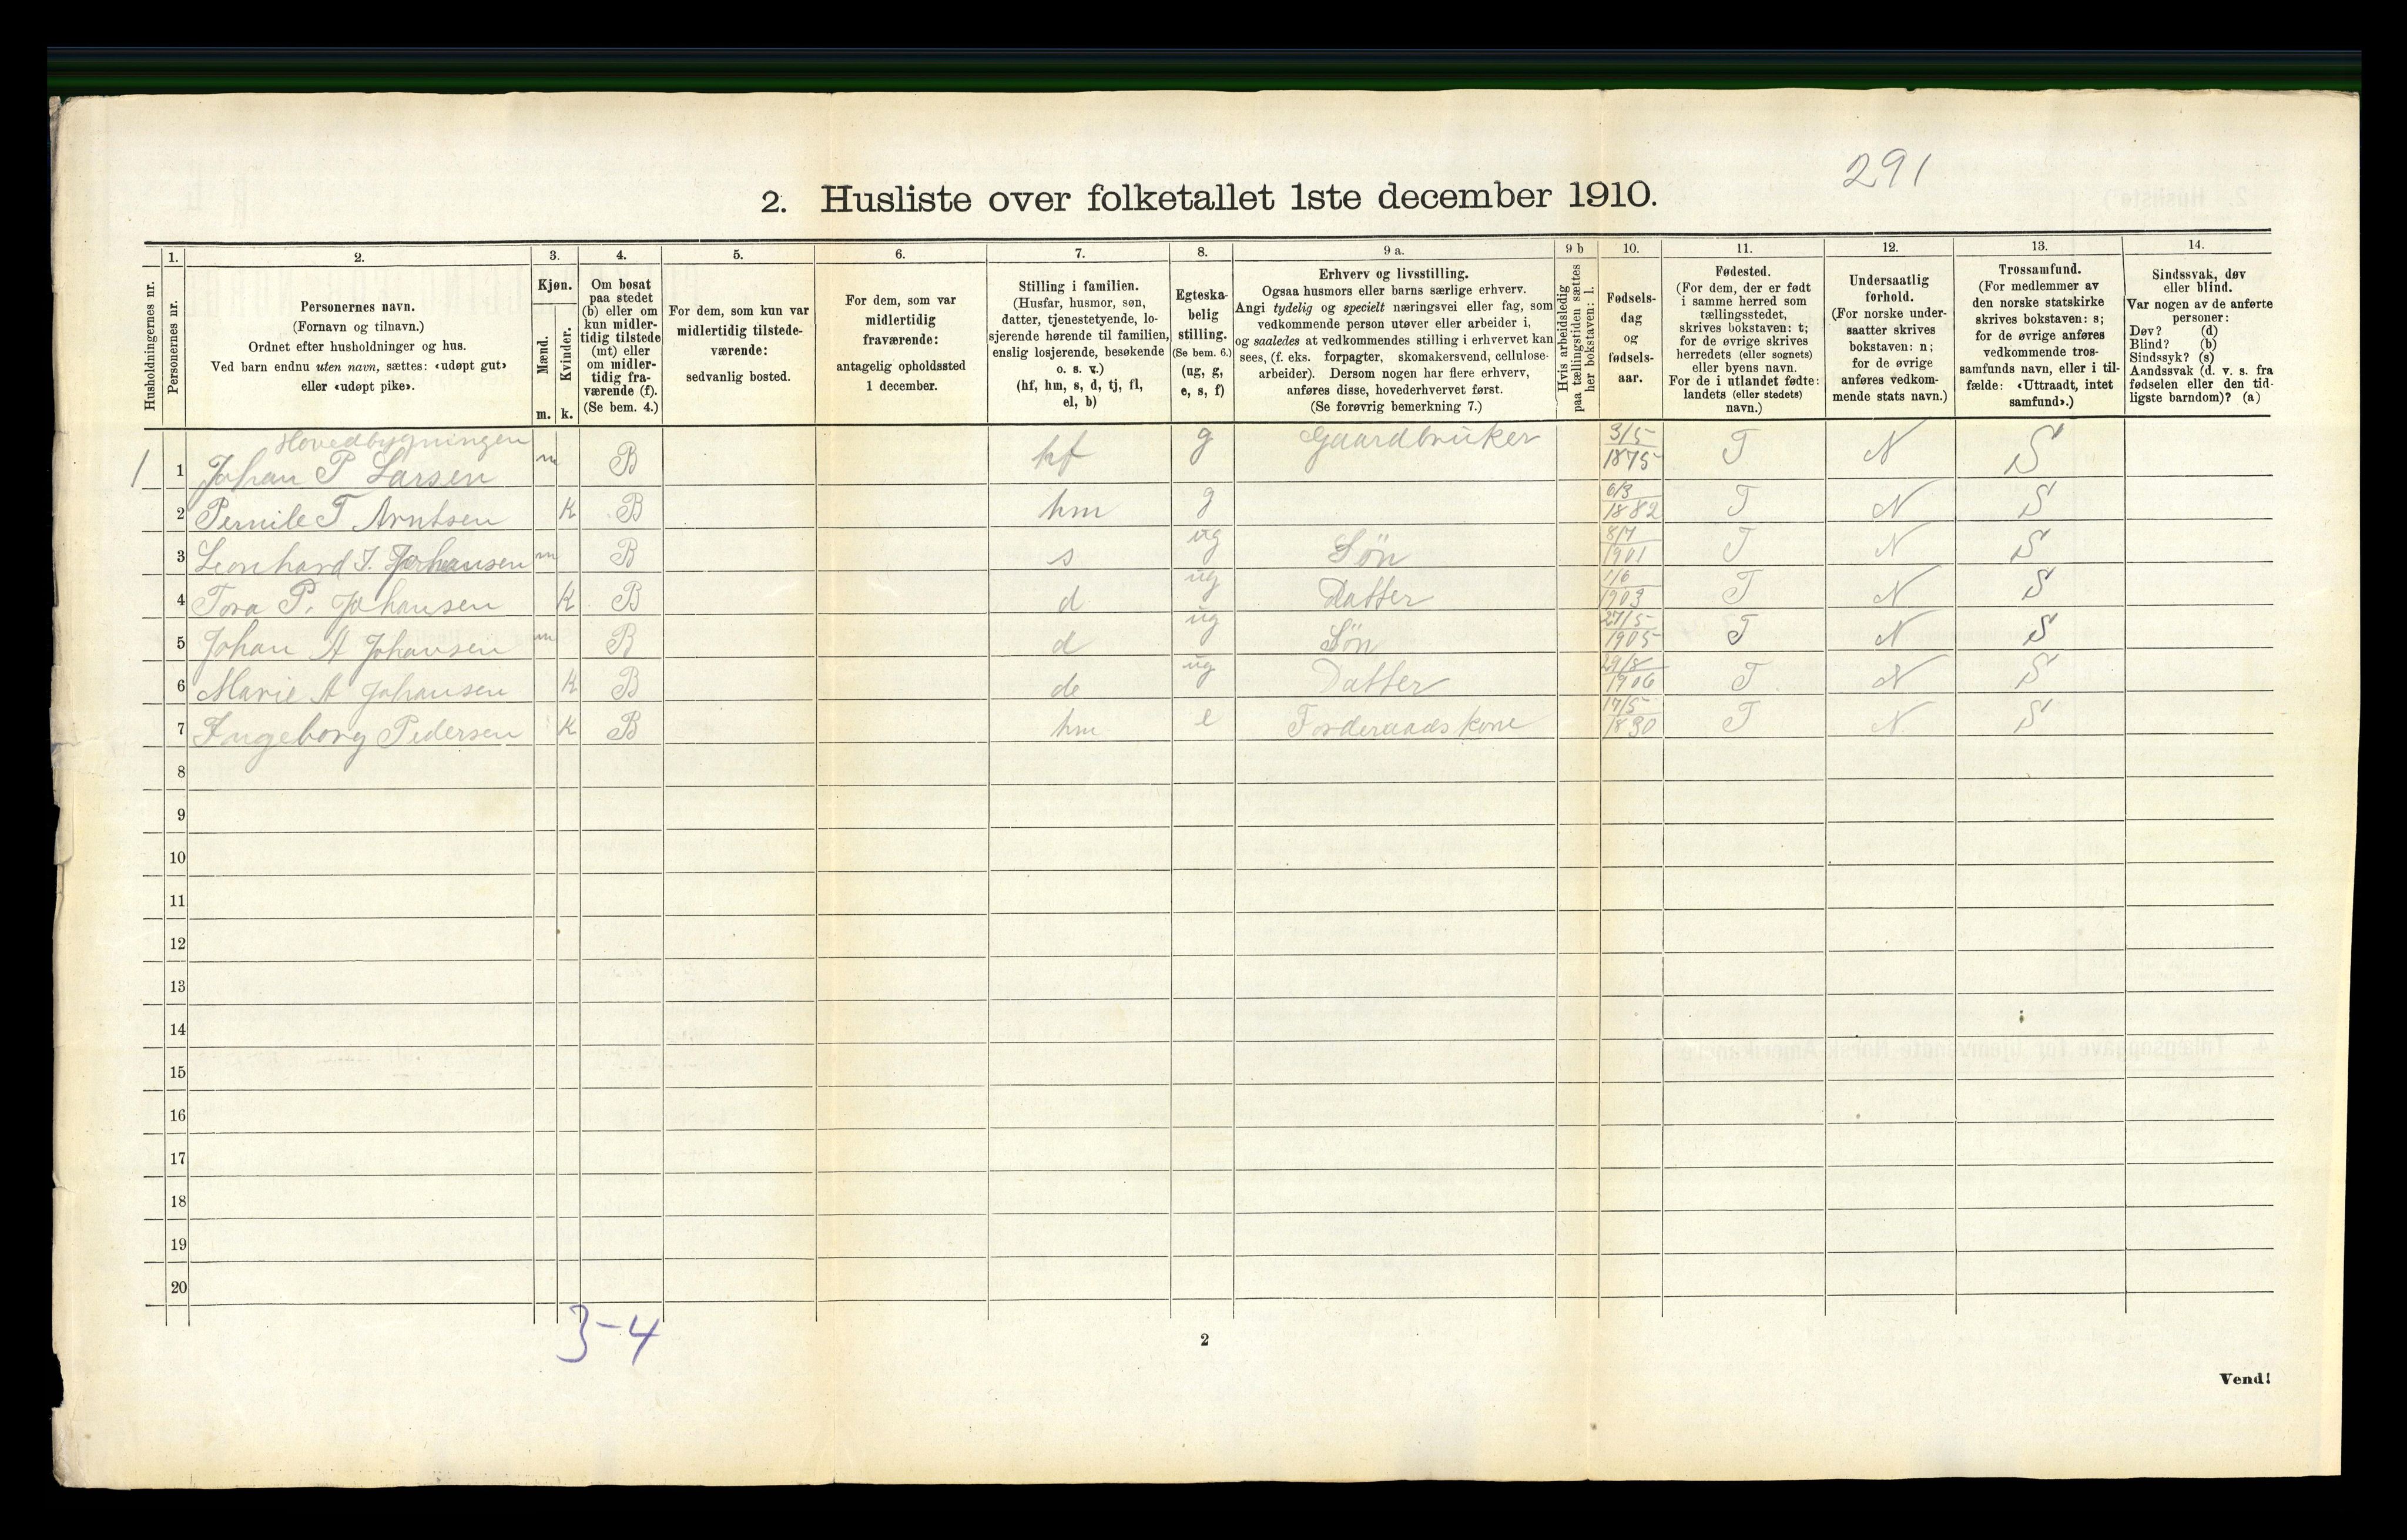 291
2. Husliste over folketallet 1ste december 1910.
Husholdningernes nr.
1.
Personernes nr.
2.
Personernes navn.
(Fornavn og tilnavn.)
Ordnet efter husholdninger og hus.
Ved barn endnu uten navn, sættes: «udøpt gut»
eller «udøpt pike».
3.
Kjøn.
Mænd.
Kvinder.
m. k.
4.
Om bosat
paa stedet
(b) eller om
kun midler-
tidig tilstede
(mt) eller
om midler-
tidig fra-
værende (f).
(Se bem. 4.)
5.
For dem, som kun var
midlertidig tilstede-
værende:
sedvanlig bosted.
6.
For dem, som var
midlertidig
fraværende:
antagelig opholdssted
1 december.
7.
Stilling i familien.
(Husfar, husmor, søn,
datter, tjenestetyende, lo-
sjerende hørende til familien,
enslig losjerende, besøkende
o. s. v.)
(hf, hm, s, d, tj, fl,
el, b)
8.
Egteska-
belig
stilling.
(Se bem. 6.)
(ug, g,
e, s, f)
9 a.
Erhverv og livsstilling.
Ogsaa husmors eller barns særlige erhverv.
Angi tydelig og specielt næringsvei eller fag, som
vedkommende person utøver eller arbeider i,
og saaledes at vedkommendes stilling i erhvervet kan
sees, (f. eks. forpagter, skomakersvend, cellulose-
arbeider). Dersom nogen har flere erhverv,
anføres disse, hovederhvervet først.
(Se forøvrig bemerkning 7.)
9 b
Hvis arbeidsledig
paa tællingstiden sættes
her bokstaven: l.
10.
Fødsels-
dag
og
fødsels-
aar.
11.
Fødested.
(For dem, der er født
i samme herred som
tællingsstedet,
skrives bokstaven: t;
for de øvrige skrives
herredets (eller sognets)
eller byens navn.
For de i utlandet fødte:
landets (eller stedets)
navn.)
12.
Undersaatlig
forhold.
(For norske under-
saatter skrives
bokstaven: n;
for de øvrige
anføres vedkom-
mende stats navn.)
13.
Trossamfund.
(For medlemmer av
den norske statskirke
skrives bokstaven: s;
for de øvrige anføres
vedkommende tros-
samfunds navn, eller i til-
fælde: «Uttraadt, intet
samfund».)
14.
Sindssvak, døv
eller blind.
Var nogen av de anførte
personer:
Døv? (d)
Blind? (b)
Sindssyk? (s)
Aandssvak (d. v. s. fra
fødselen eller den tid-
ligste barndom)? (a)
Hovedbygningen
1 1 Johan P Larsen m B hf g Gaardbruker 3/5 1875 T N S
2 Pernile T Arntsen K B hm g 6/3 1882 T N S
3 Leonhard J. Johansen m B s ug Søn 8/7 1901 T N S
4 Tora P. Johansen K B d ug Datter 1/6 1903 T N S
5 Johan A Johansen m B d ug Søn 27/5 1905 T N S
6 Marie A Johansen K B de ug Datter 29/8 1906 T N S
7 Ingeborg Pedersen K B hm e Forderaadskone 17/5 1830 T N S
8
9
10
11
12
13
14
15
16
17
18
19
20
3-4
2
Vend!